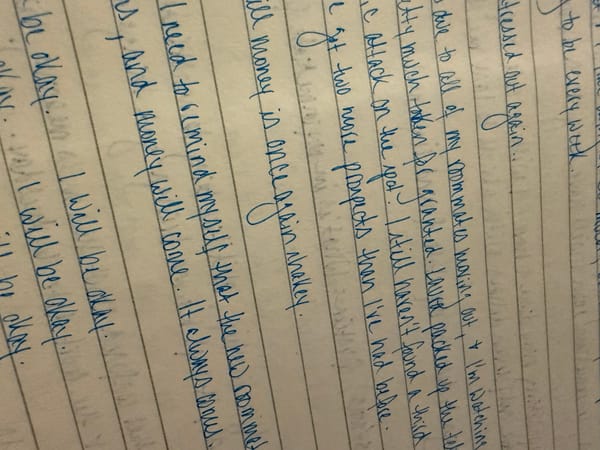 to be every week.
stressed out again.
due to all of my roommates moving out, + I'm watching
etty much taken for granted packed up the te
ic attack on the spot. I still haven't found a third
e got two more prospects then I've had before.
ill money is once again shakey.
I need to remind myself that the new roommat
rs, and money will come. It always comes.
be okay. I will be okay.
okay. I will be okay.
ill be okay.